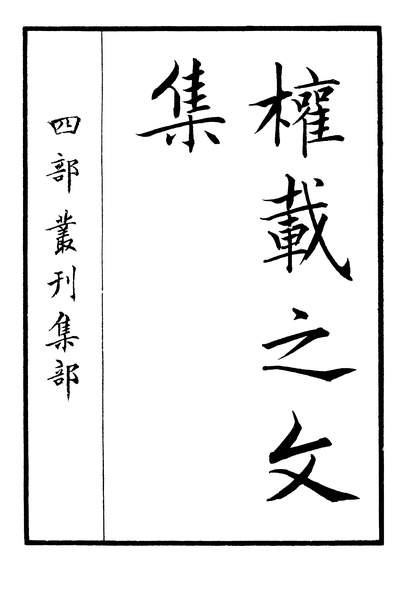 權載之文
集
四部叢刊集部